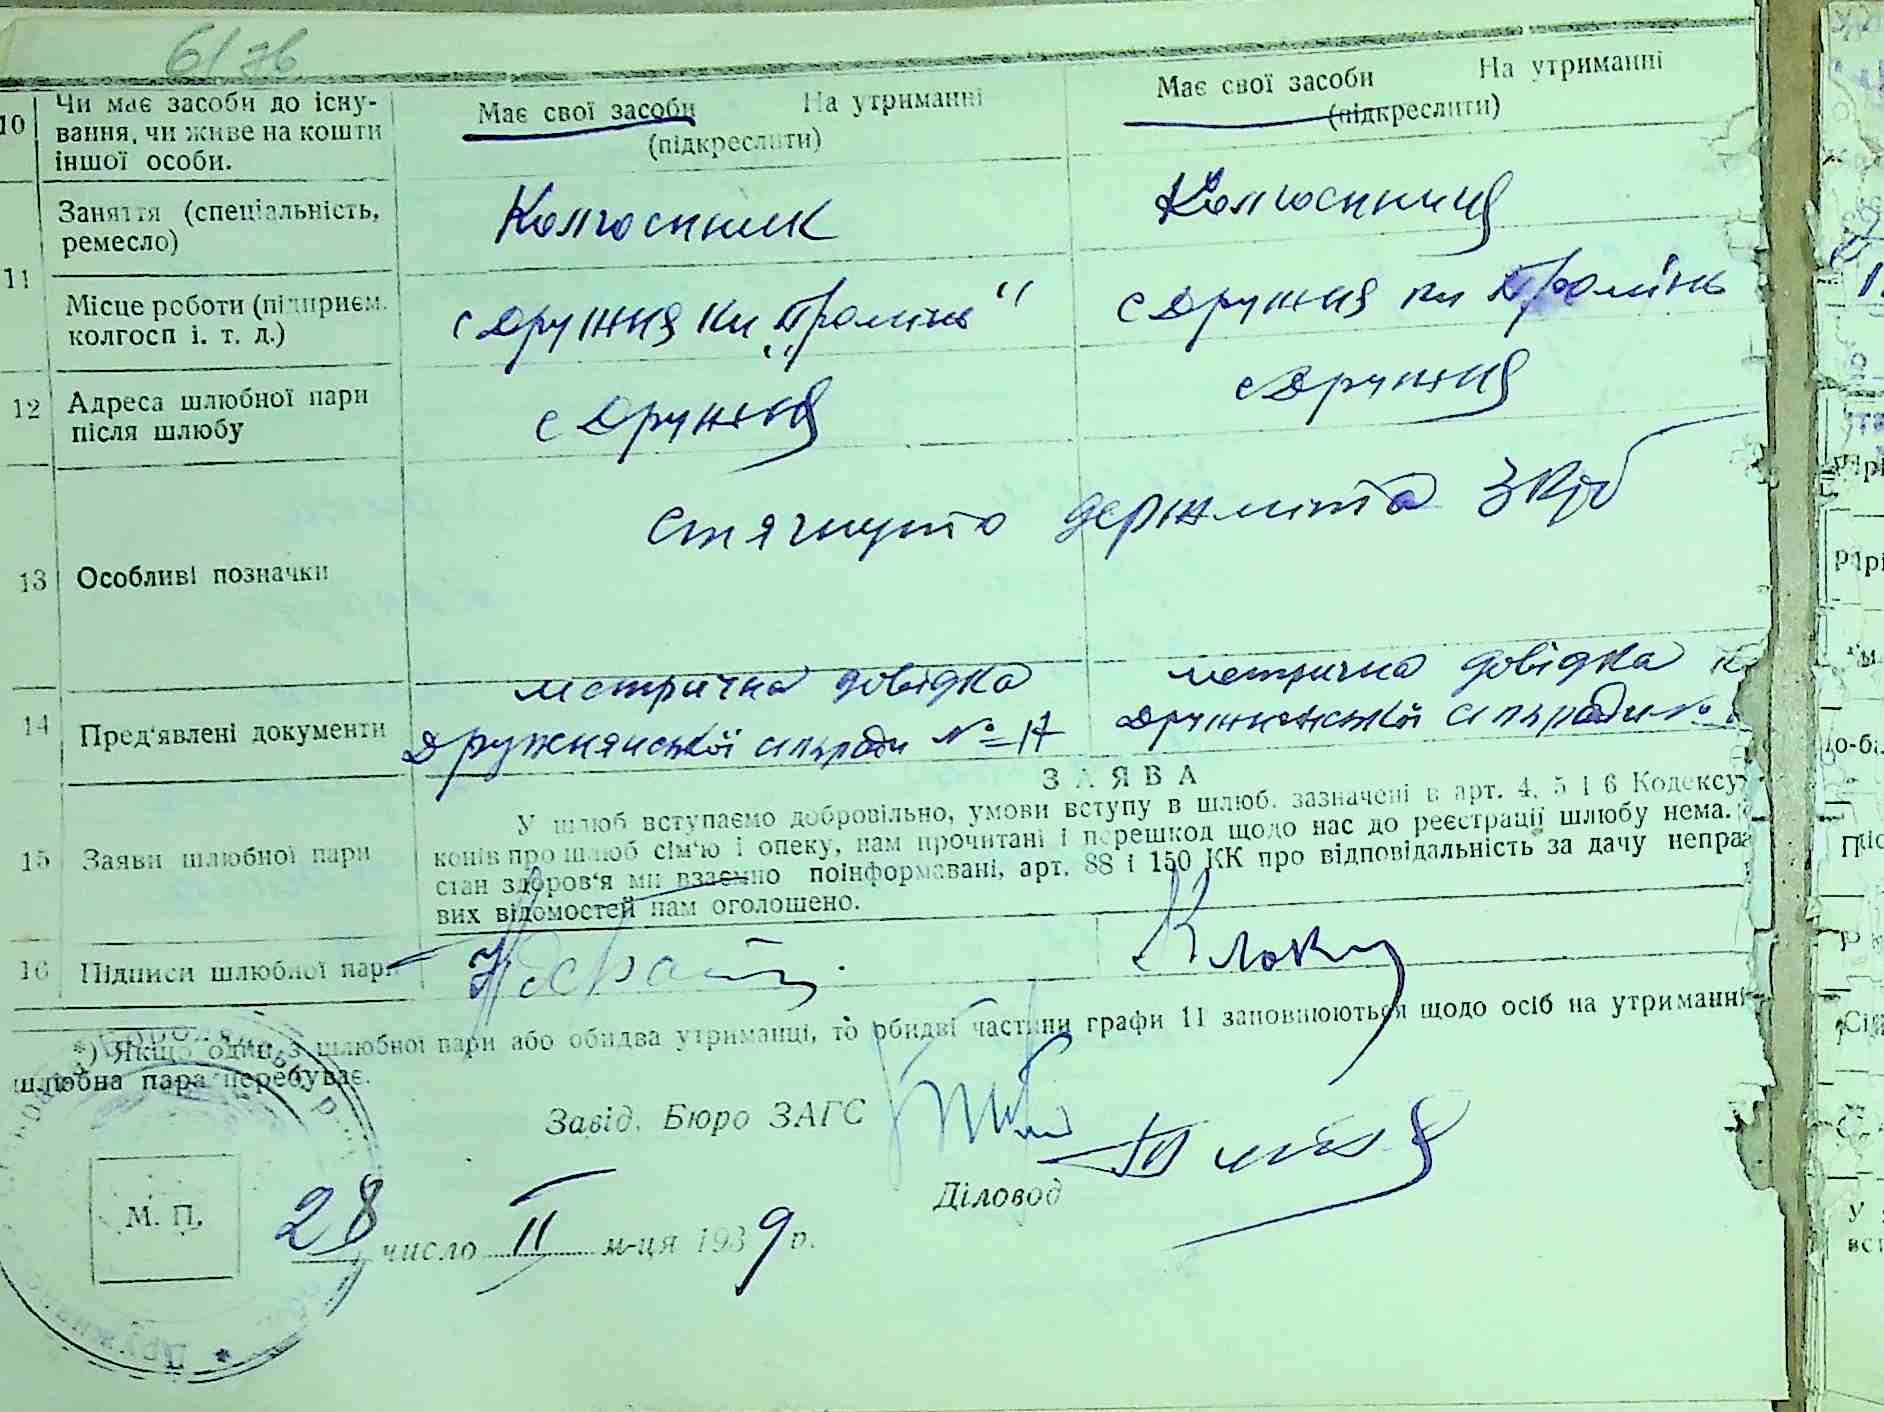 10 Чи має засоби до існу-
вання, чи живе на кошти
іншої особи.
Має свої засоби На утриманні
(підкреслити)
Має свої засоби На утриманні
(підкреслити)
11 Заняття (спеціальність,
ремесло)
Колгоспник
Колгоспниця
Місце роботи (підприєм.
колгосп і. т. д.)
с Дружня кп "Промінь"
с Дружня кп Промінь
12 Адреса шлюбної пари
після шлюбу
с Дружня
с Дружня
13 Особливі позначки
стягнуто держмита 3 крб
14 Пред'явлені документи
метрична довідка
Дружнянської сільради № 17
метрична довідка
Дружнянської сільради №
15 Заяви шлюбної пари
ЗАЯВА
У шлюб вступаємо добровільно, умови вступу в шлюб. зазначені в арт. 4, 5 і 6 Кодексу
конів про шлюб сім'ю і опеку, нам прочитані і перешкод щодо нас до реєстрації шлюбу нема.
стан здоров'я ми взаємно поінформовані, арт. 88 і 150 КК про відповідальність за дачу неправ
вих відомостей нам оголошено.
16 Підписи шлюбної пари
*) Якщо один з шлюбної пари або обидва утриманці, то обидві частини графи 11 заповнюються щодо осіб на утриманні
шлюбна пара перебуває.
Завід. Бюро ЗАГС
Діловод
М. П.
28 число II м-ця 1939 р.